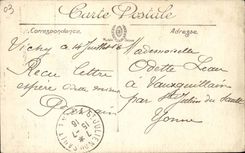 03
Carte Postale
Correspondance
Adresse
Vichy 14 Juillet 16
Reçu lettre
espère
Mademoiselle
Odette Leau
à Vauxguillain
par St Julien du Sault
Yonne